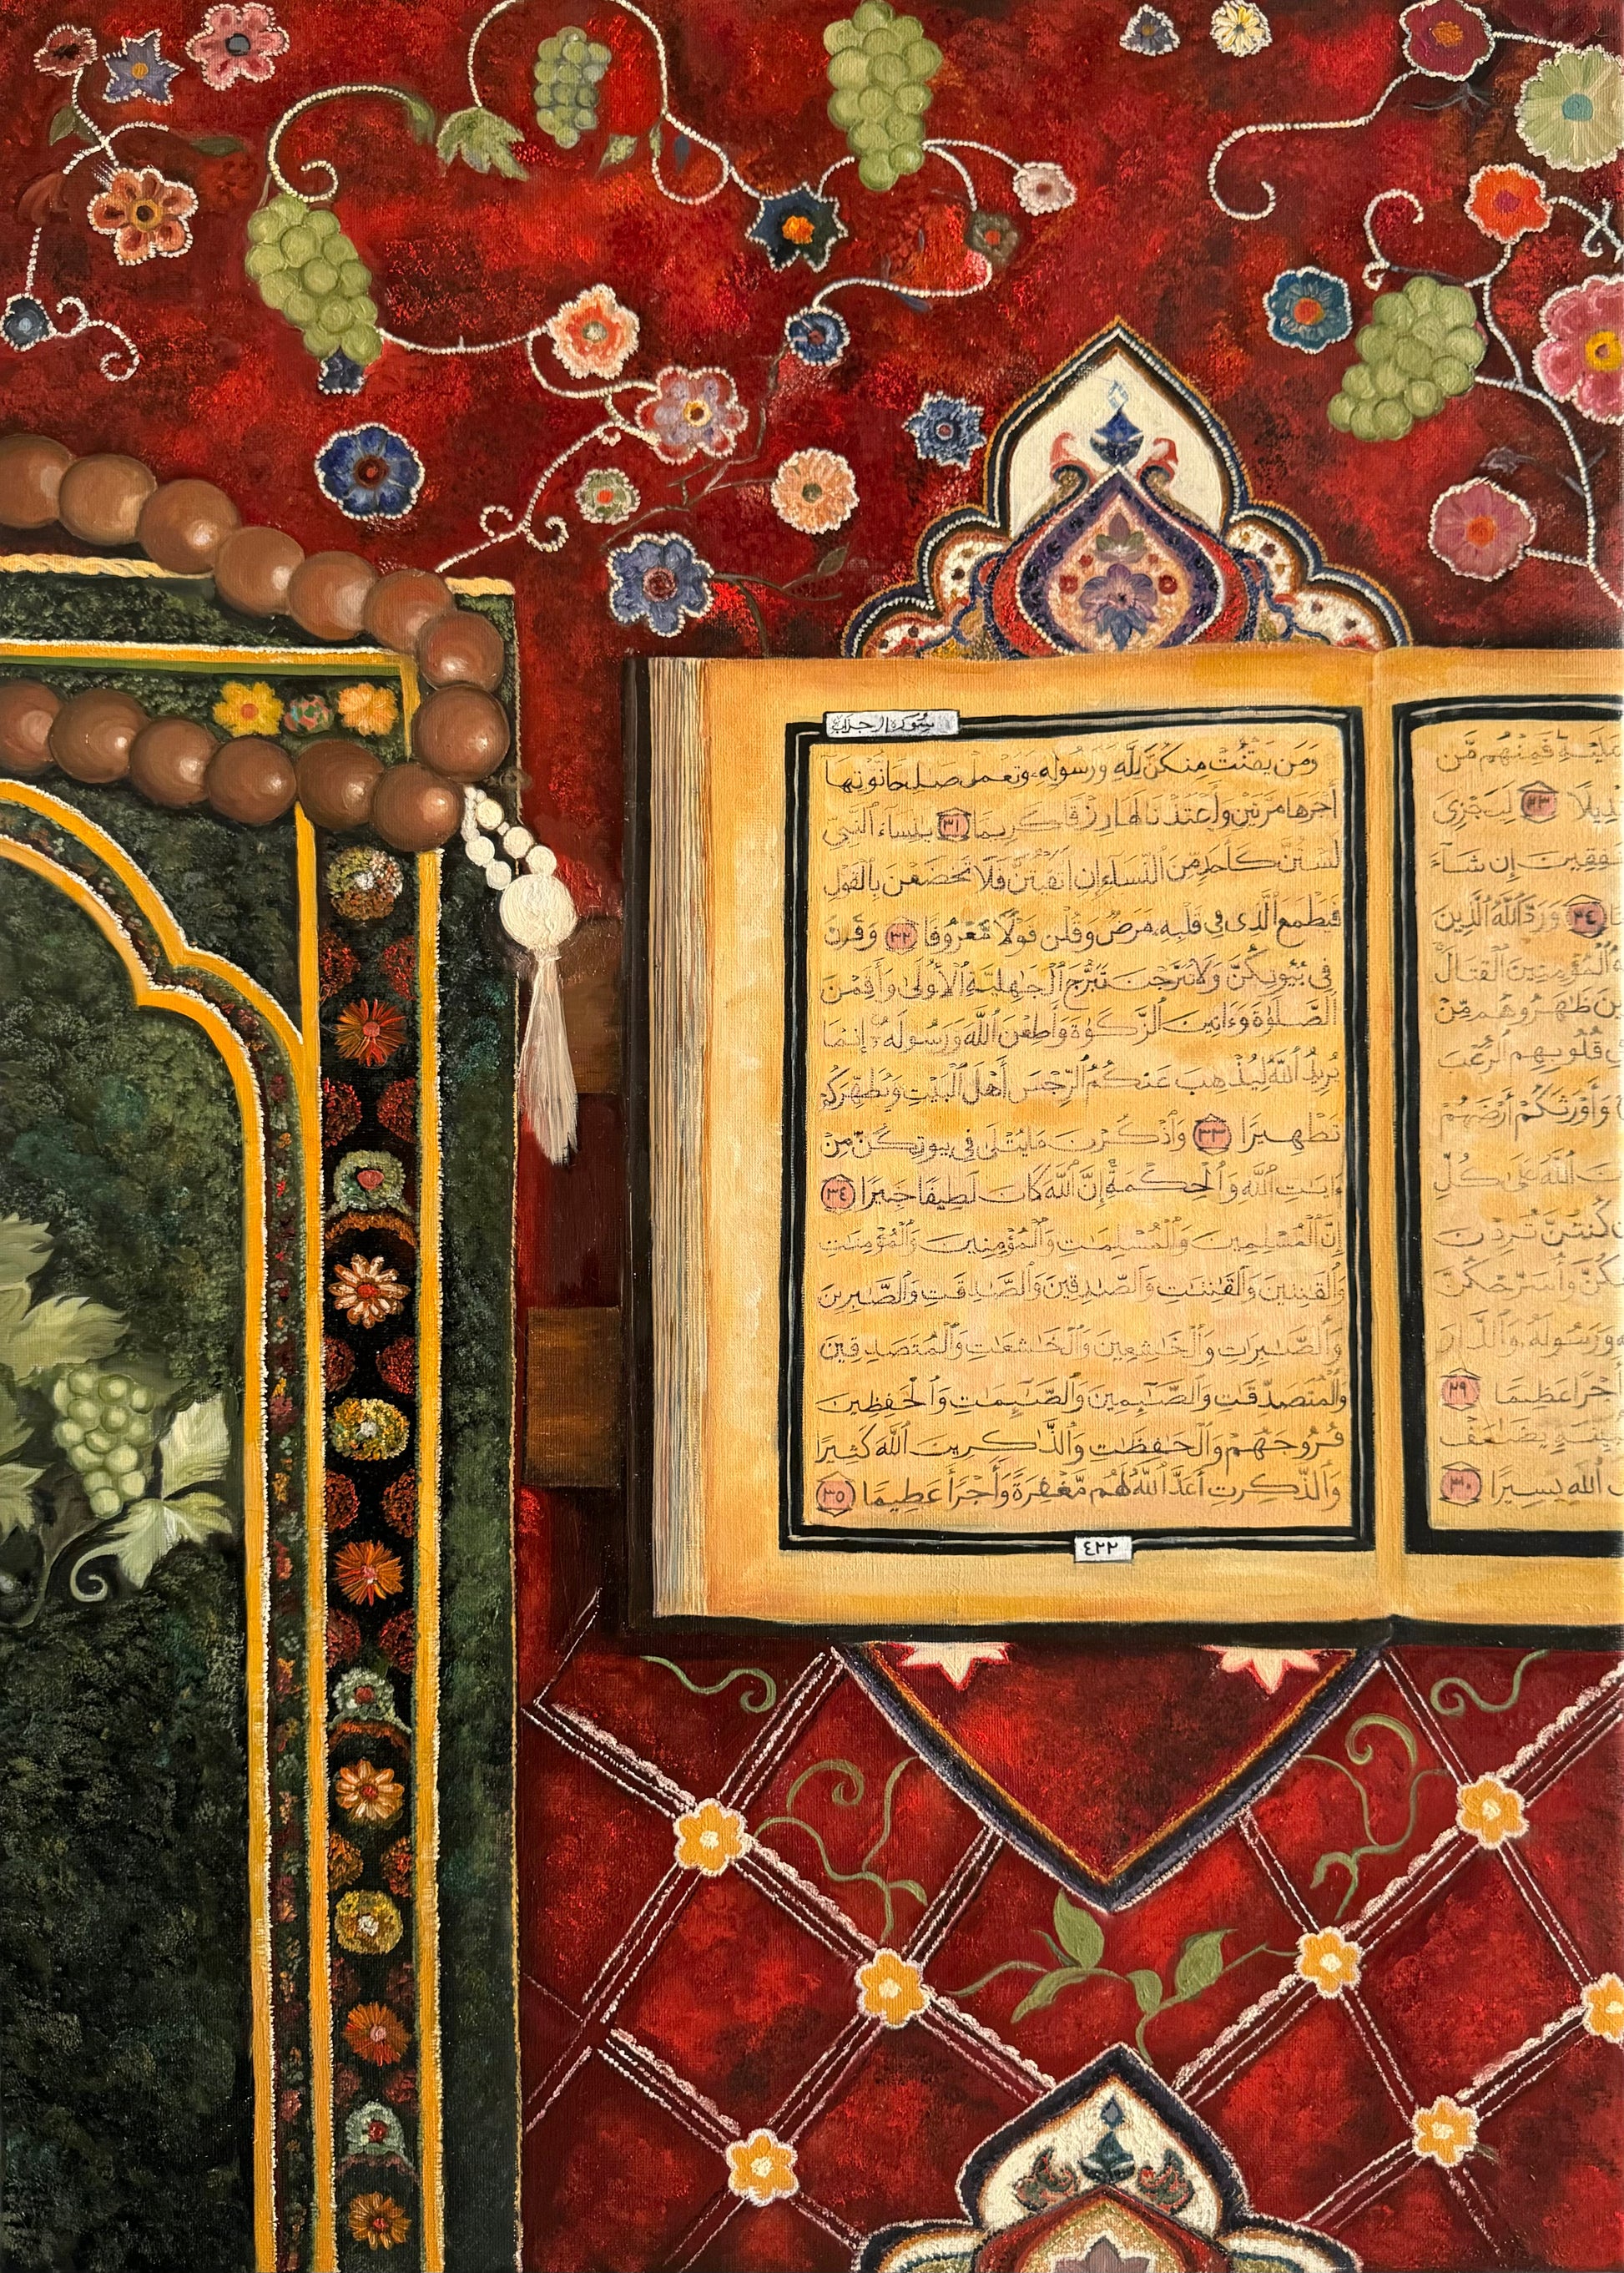 عَلَيْهِ فَمِنْهُم مَّن
دِيلًا ٢٣ لِيَجْزِيَ
فِقِينَ إِن شَآءَ
٢٤ وَرَدَّ ٱللَّهُ ٱلَّذِينَ
ٱلْمُؤْمِنِينَ ٱلْقِتَالَ
ظَٰهَرُوهُم مِّنْ
قُلُوبِهِمُ ٱلرُّعْبَ
وَأَوْرَثَكُمْ أَرْضَهُمْ
ٱللَّهُ عَلَىٰ كُلِّ
كُنتُنَّ تُرِدْنَ
كُنَّ وَأُسَرِّحْكُنَّ
وَرَسُولَهُۥ وَٱلدَّارَ
جْرًا عَظِيمًا ٢٩
يُضَٰعَفْ
ٱللَّهِ يَسِيرًا ٣٠
سُورَة الاحزاب
وَمَن يَقْنُتْ مِنكُنَّ لِلَّهِ وَرَسُولِهِۦ وَتَعْمَلْ صَٰلِحًا نُّؤْتِهَآ
أَجْرَهَا مَرَّتَيْنِ وَأَعْتَدْنَا لَهَا رِزْقًا كَرِيمًا ٣١ يَٰنِسَآءَ ٱلنَّبِيِّ
لَسْتُنَّ كَأَحَدٍ مِّنَ ٱلنِّسَآءِ إِنِ ٱتَّقَيْتُنَّ فَلَا تَخْضَعْنَ بِٱلْقَوْلِ
فَيَطْمَعَ ٱلَّذِى فِى قَلْبِهِۦ مَرَضٌ وَقُلْنَ قَوْلًا مَّعْرُوفًا ٣٢ وَقَرْنَ
فِى بُيُوتِكُنَّ وَلَا تَبَرَّجْنَ تَبَرُّجَ ٱلْجَٰهِلِيَّةِ ٱلْأُولَىٰ وَأَقِمْنَ
ٱلصَّلَوٰةَ وَءَاتِينَ ٱلزَّكَوٰةَ وَأَطِعْنَ ٱللَّهَ وَرَسُولَهُۥٓ إِنَّمَا
يُرِيدُ ٱللَّهُ لِيُذْهِبَ عَنكُمُ ٱلرِّجْسَ أَهْلَ ٱلْبَيْتِ وَيُطَهِّرَكُمْ
تَطْهِيرًا ٣٣ وَٱذْكُرْنَ مَا يُتْلَىٰ فِى بُيُوتِكُنَّ مِنْ
ءَايَٰتِ ٱللَّهِ وَٱلْحِكْمَةِ إِنَّ ٱللَّهَ كَانَ لَطِيفًا خَبِيرًا ٣٤
إِنَّ ٱلْمُسْلِمِينَ وَٱلْمُسْلِمَٰتِ وَٱلْمُؤْمِنِينَ وَٱلْمُؤْمِنَٰتِ
وَٱلْقَٰنِتِينَ وَٱلْقَٰنِتَٰتِ وَٱلصَّٰدِقِينَ وَٱلصَّٰدِقَٰتِ وَٱلصَّٰبِرِينَ
وَٱلصَّٰبِرَٰتِ وَٱلْخَٰشِعِينَ وَٱلْخَٰشِعَٰتِ وَٱلْمُتَصَدِّقِينَ
وَٱلْمُتَصَدِّقَٰتِ وَٱلصَّٰٓئِمِينَ وَٱلصَّٰٓئِمَٰتِ وَٱلْحَٰفِظِينَ
فُرُوجَهُمْ وَٱلْحَٰفِظَٰتِ وَٱلذَّٰكِرِينَ ٱللَّهَ كَثِيرًا
وَٱلذَّٰكِرَٰتِ أَعَدَّ ٱللَّهُ لَهُم مَّغْفِرَةً وَأَجْرًا عَظِيمًا ٣٥
٤٢٢